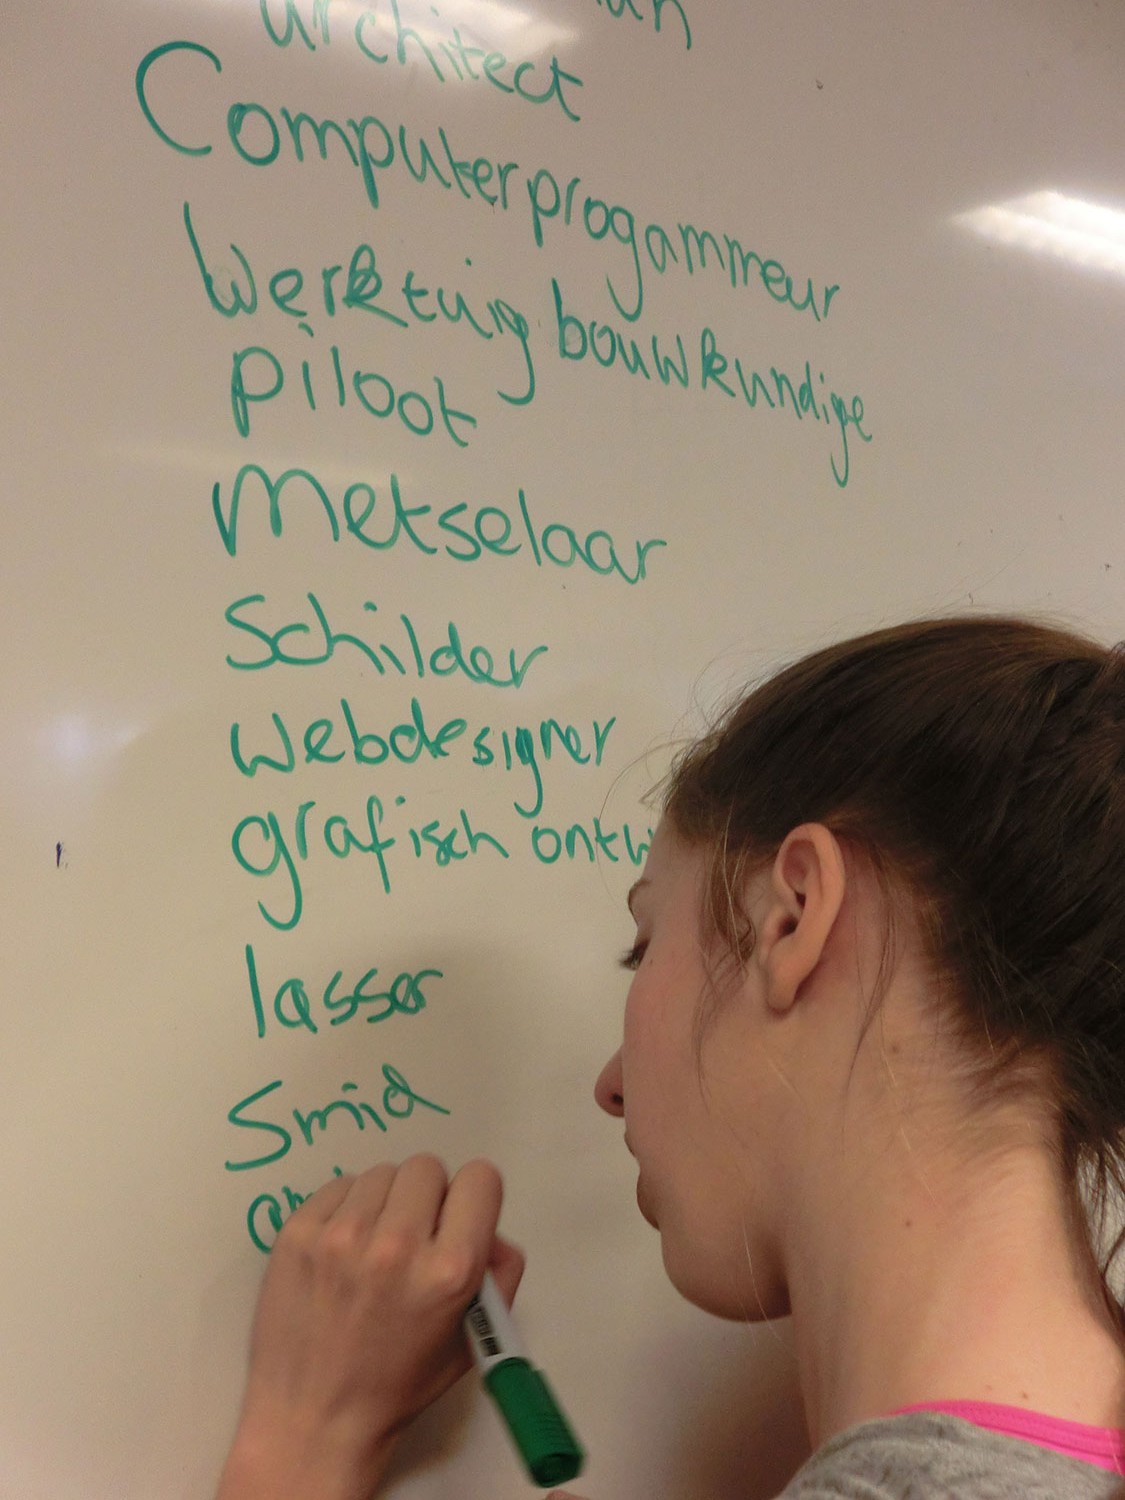 architect
Computerprogammeur
Werktuigbouwkundige
piloot
Metselaar
Schilder
Webdesigner
grafisch
lasser
Smid